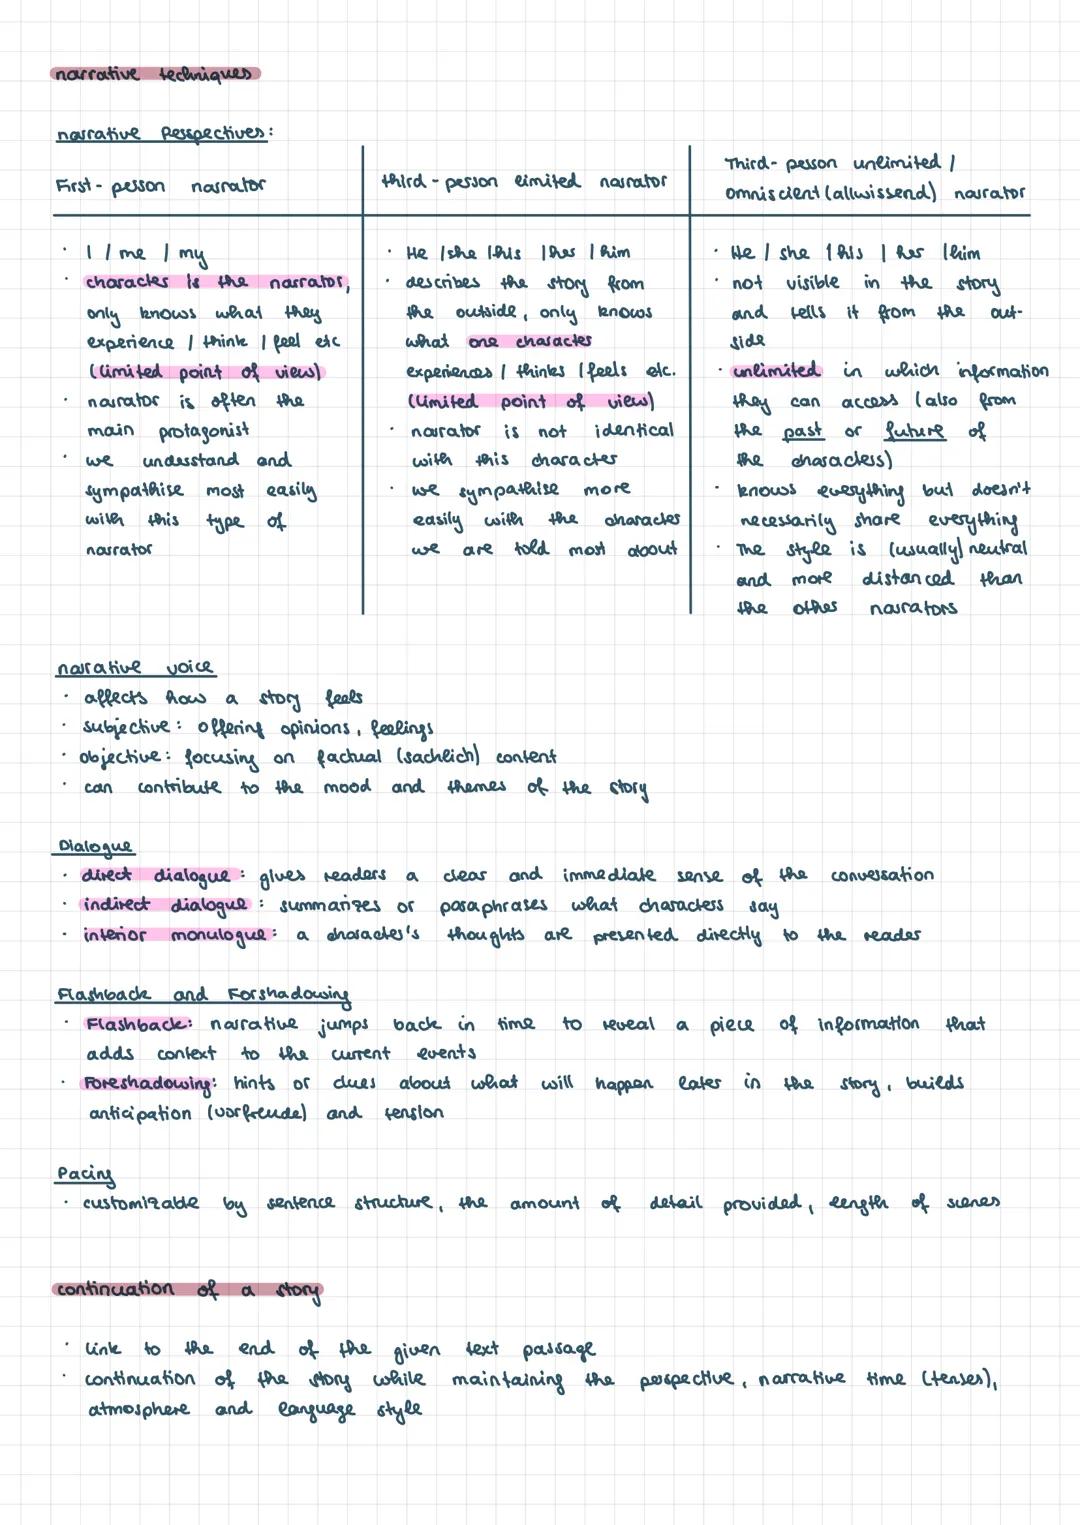 narrative techniques
narrative Perspectives:
First-person narrator
I / me / my
character is the narrator,
only knows what they
experience / think / feel etc
(limited point of view)
narrator is often the
main protagonist
we understand and
sympathise most easily
with this type of
narrator
third-person limited narrator
He / she / his / her / him
describes the story from
the outside, only knows
what one character
experiences / thinks / feels etc.
(limited point of view)
narrator is not identical
with this character
we sympathise more
easily with the character
we are told most about
Third-person unlimited /
omniscient (allwissend) narrator
He / she / his / her / him
not visible in the story
and tells it from the out-
side
unlimited in which information
they can access (also from
the past or future of
the characters)
knows everything but doesn't
necessarily share everything
The style is (usually) neutral
and more distanced than
the other narrators
narrative voice
affects how a story feels
subjective: offering opinions, feelings
objective: focusing on factual (sachlich) content
can contribute to the mood and themes of the story
Dialogue
direct dialogue: gives readers a clear and immediate sense of the conversation
indirect dialogue: summarizes or paraphrases what characters say
interior monulogue: a character's thoughts are presented directly to the reader
Flashback and Forshadowing
Flashback: narrative jumps back in time to reveal a piece of information that
adds context to the current events
Foreshadowing: hints or clues about what will happen later in the story, builds
anticipation (vorfreude) and tension
Pacing
customizable by sentence structure, the amount of detail provided, length of scenes
continuation of a story
link to the end of the given text passage
continuation of the story while maintaining the perspective, narrative time (tenses),
atmosphere and language style